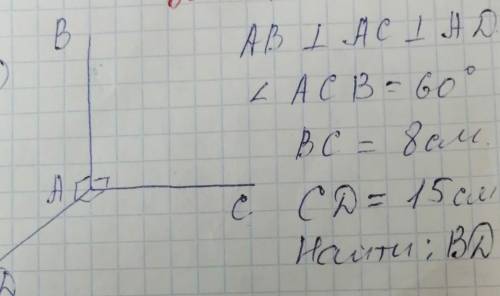 B
A
C
D
AB ⊥ AC ⊥ AD
∠ ACB = 60°
BC = 8 см.
CD = 15 см
Найти: BD